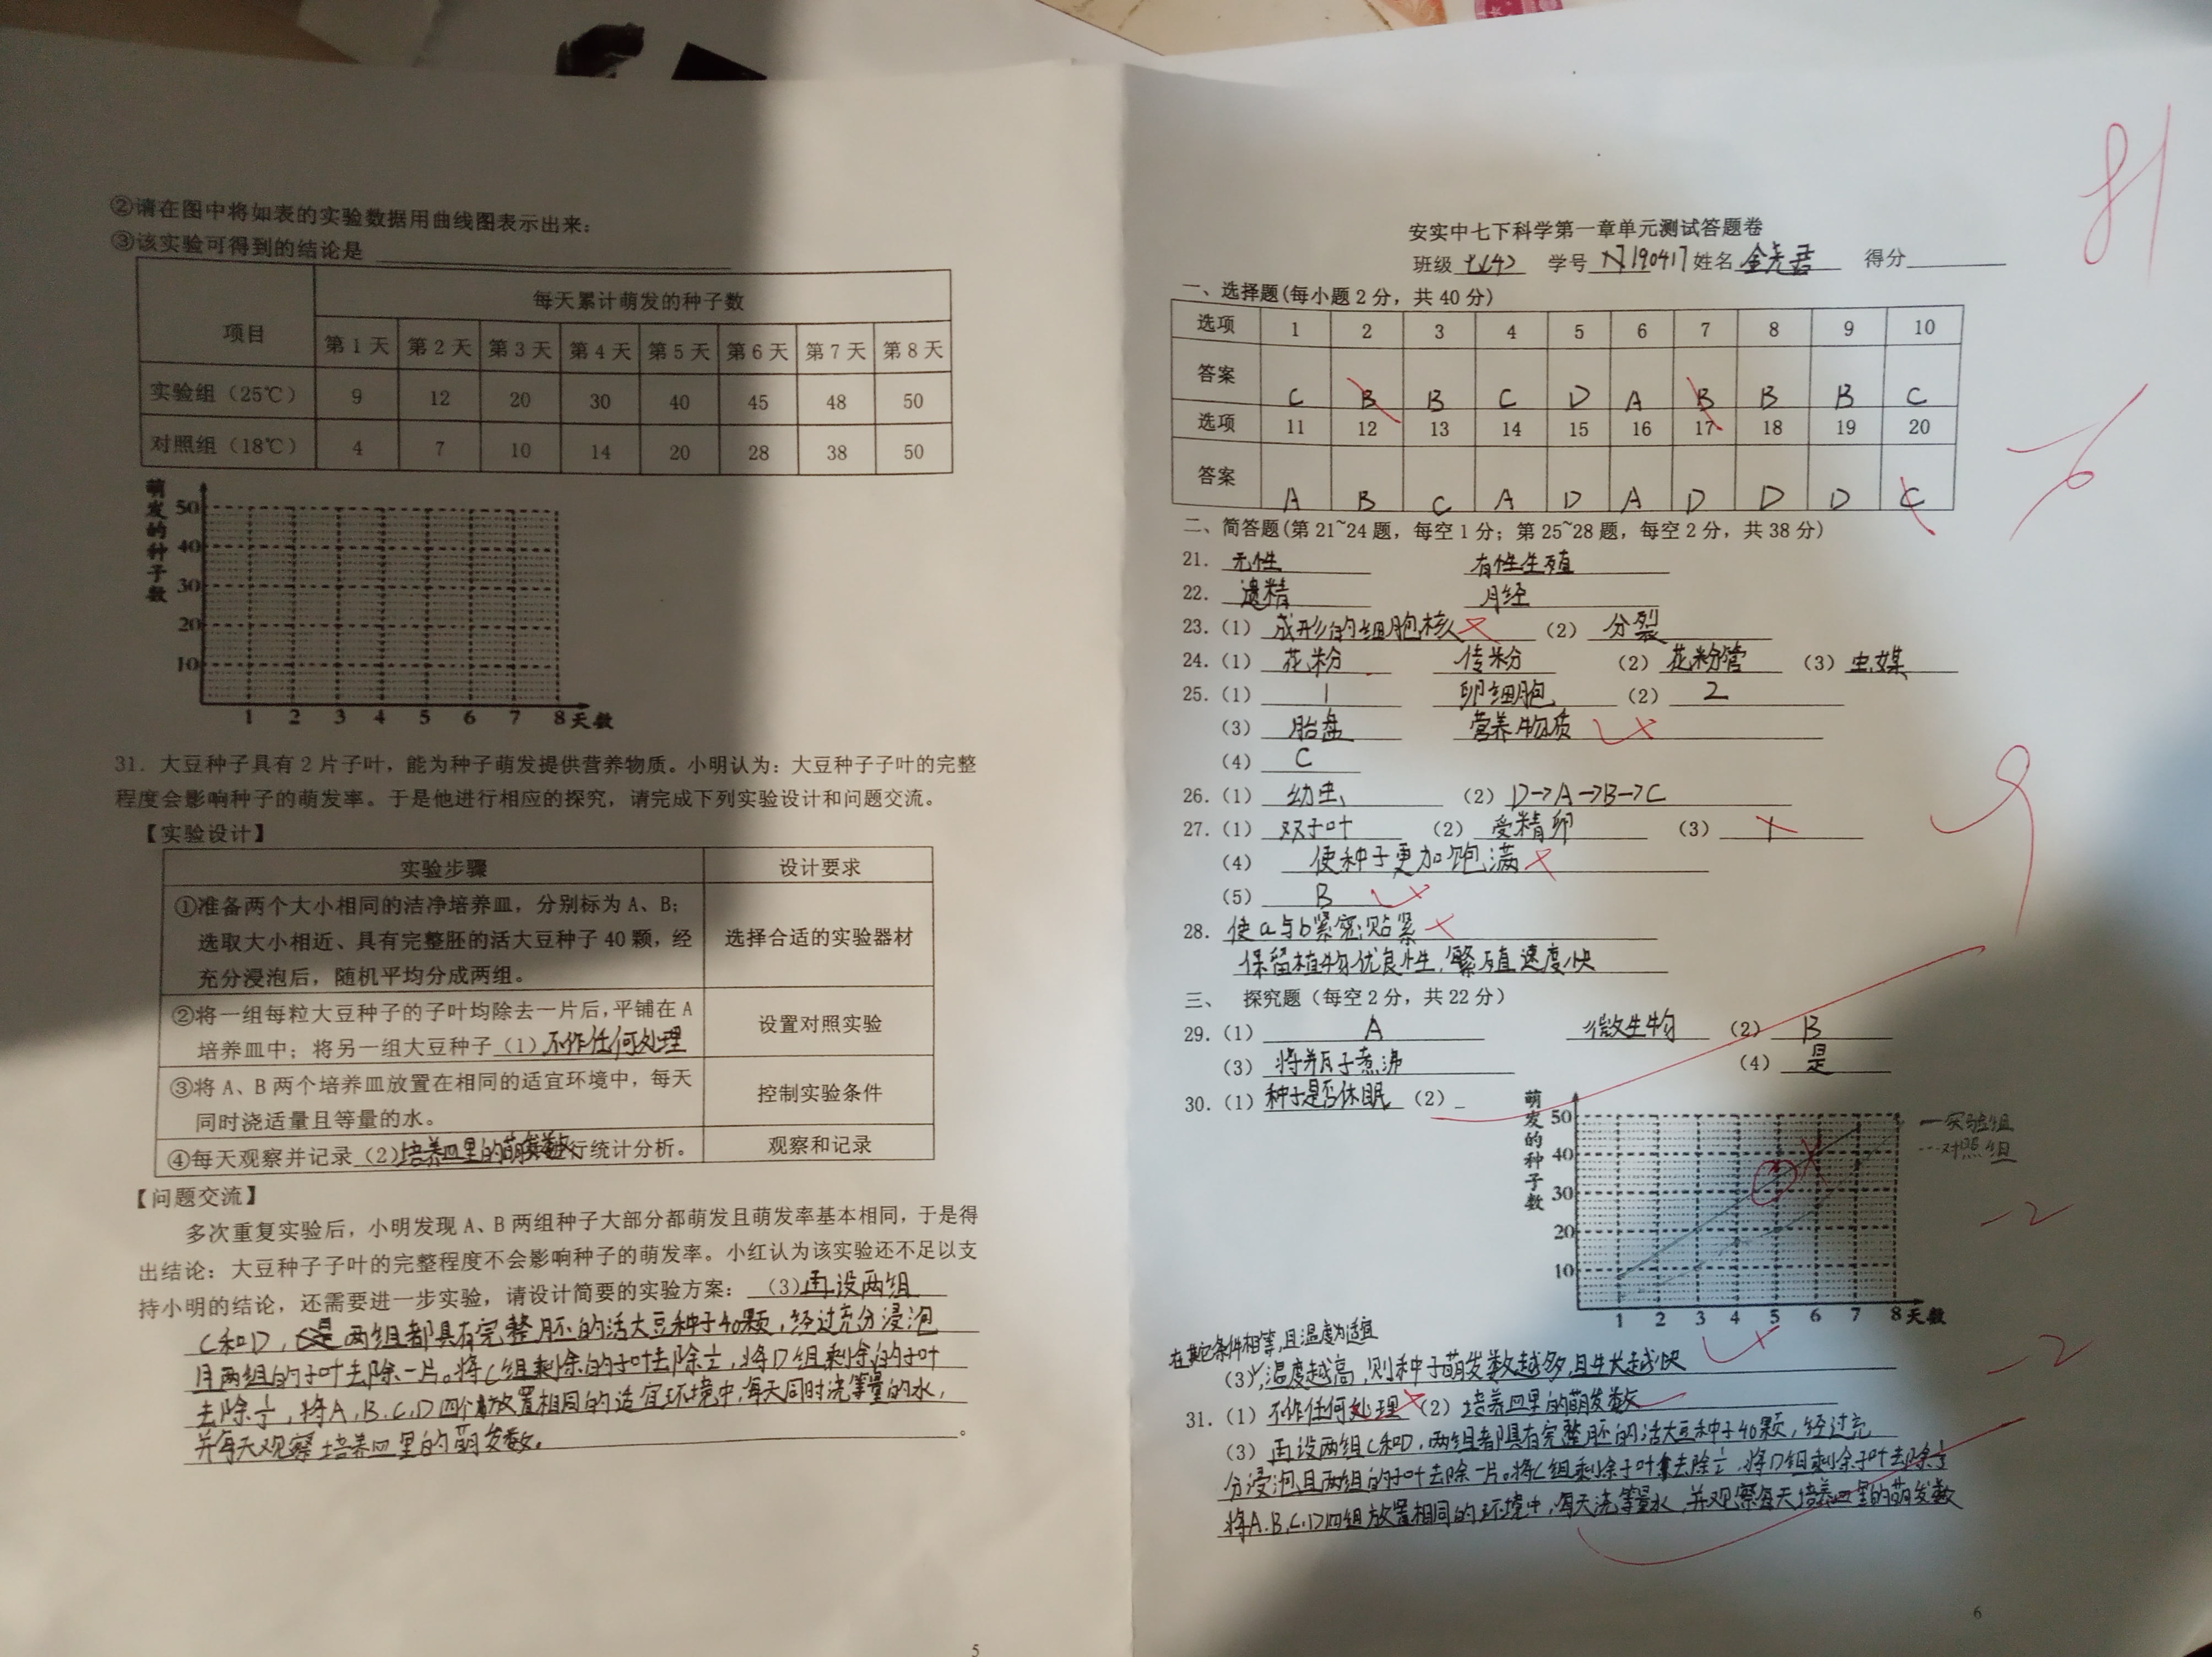 ②请在图中将如表的实验数据用曲线图表示出来:
③该实验可得到的结论是
项目 每天累计萌发的种子数
第1天 第2天 第3天 第4天 第5天 第6天 第7天 第8天
实验组（25℃） 9 12 20 30 40 45 48 50
对照组（18℃） 4 7 10 14 20 28 38 50
萌发的种子数
50
40
30
20
10
1 2 3 4 5 6 7 8天数
31. 大豆种子具有2片子叶，能为种子萌发提供营养物质。小明认为：大豆种子子叶的完整
程度会影响种子的萌发率。于是他进行相应的探究，请完成下列实验设计和问题交流。
【实验设计】
实验步骤 设计要求
①准备两个大小相同的洁净培养皿，分别标为A、B；
选取大小相近、具有完整胚的活大豆种子40颗，经
充分浸泡后，随机平均分成两组。
选择合适的实验器材
②将一组每粒大豆种子的子叶均除去一片后，平铺在A
培养皿中；将另一组大豆种子（1）不作任何处理
设置对照实验
③将A、B两个培养皿放置在相同的适宜环境中，每天
同时浇适量且等量的水。
控制实验条件
④每天观察并记录（2）培养皿里的萌发数行统计分析。
观察和记录
【问题交流】
多次重复实验后，小明发现A、B两组种子大部分都萌发且萌发率基本相同，于是得
出结论：大豆种子子叶的完整程度不会影响种子的萌发率。小红认为该实验还不足以支
持小明的结论，还需要进一步实验，请设计简要的实验方案：（3）再设两组
C和D，两组都具有完整胚的活大豆种子40颗，经过充分浸泡
且两组的子叶去除一片。将C组剩余的子叶去除，将D组剩余的子叶
去除，将A,B,C,D四个放置相同的适宜环境中，每天同时浇等量的水，
并每天观察培养皿里的萌发数。
5
81
安实中七下科学第一章单元测试答题卷
班级 学号 190417 姓名 得分
一、选择题(每小题2分，共40分)
选项 1 2 3 4 5 6 7 8 9 10
答案 C B B C D A B B B C
选项 11 12 13 14 15 16 17 18 19 20
答案 A B C A D A D D D C
-6
二、简答题(第21~24题，每空1分；第25~28题，每空2分，共38分)
21. 无性 有性生殖
22. 遗精 月经
23.（1）成形的细胞核（2）分裂
24.（1）花粉 传粉（2）花粉管（3）虫媒
25.（1）1 卵细胞（2）2
（3）胎盘 营养物质
（4）C
26.（1）幼虫（2）D→A→B→C
27.（1）双子叶（2）受精卵（3）
（4）使种子更加饱满
（5）B
28. 使a与b紧密贴紧
保留植物优良性，繁殖速度快
-9
三、 探究题（每空2分，共22分）
29.（1）A 微生物（2）B
（3）将瓶子煮沸（4）是
30.（1）种子是否休眠（2）
萌发的种子数
50
40
30
20
10
1 2 3 4 5 6 7 8天数
—实验组
---对照组
-2
在其它条件相等，且温度为适宜
（3）温度越高，则种子萌发数越多，且生长越快
-2
31.（1）不作任何处理（2）培养皿里的萌发数
（3）再设两组C和D，两组都具有完整胚的活大豆种子40颗，经过充
分浸泡且两组的子叶去除一片。将C组剩余子叶去除，将D组剩余子叶去除
将A.B.C.D四组放置相同的环境中，每天浇等量水，并观察每天培养皿里的萌发数
6